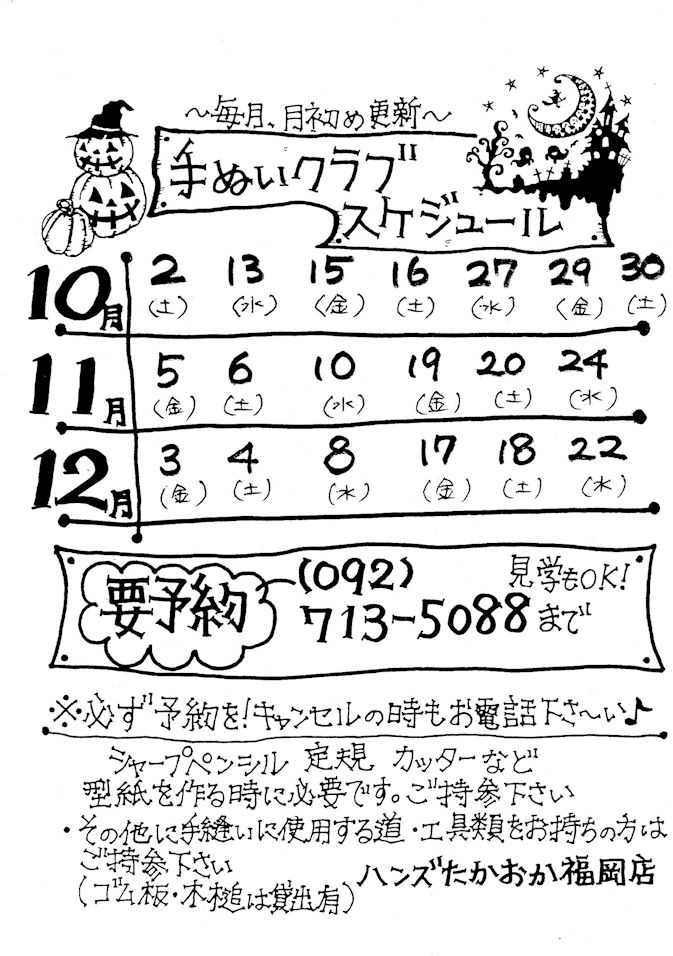 ～毎月、月初め更新～
手ぬいクラブ
スケジュール
10月 2(土) 13(水) 15(金) 16(土) 27(水) 29(金) 30(土)
11月 5(金) 6(土) 10(水) 19(金) 20(土) 24(水)
12月 3(金) 4(土) 8(水) 17(金) 18(土) 22(水)
要予約 (092) 見学もOK!
713-5088 まで
※必ず予約を!キャンセルの時もお電話下さ～い♪
シャープペンシル 定規 カッターなど
型紙を作る時に必要です。ご持参下さい
・その他に手縫いに使用する道・工具類をお持ちの方は
ご持参下さい
(ゴム板・木槌は貸出有)
ハンズたかおか福岡店